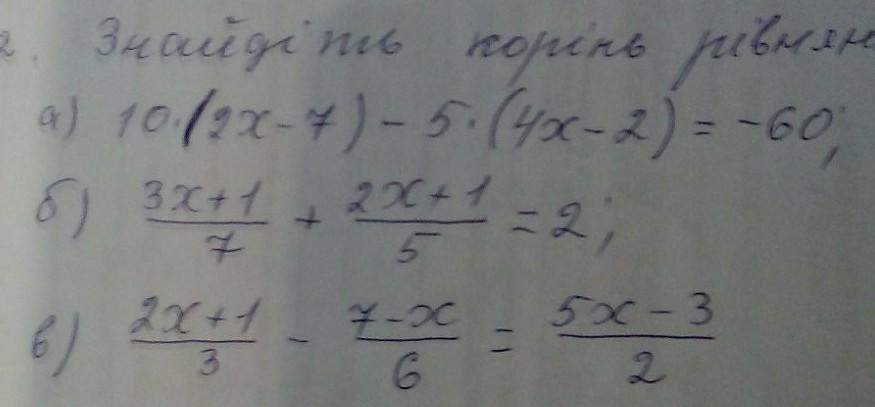 2. Знайдіть корінь рівнян
а) 10·(2x-7)-5·(4x-2)=-60;
б) \frac{3x+1}{7} + \frac{2x+1}{5} = 2;
в) \frac{2x+1}{3} - \frac{7-x}{6} = \frac{5x-3}{2}